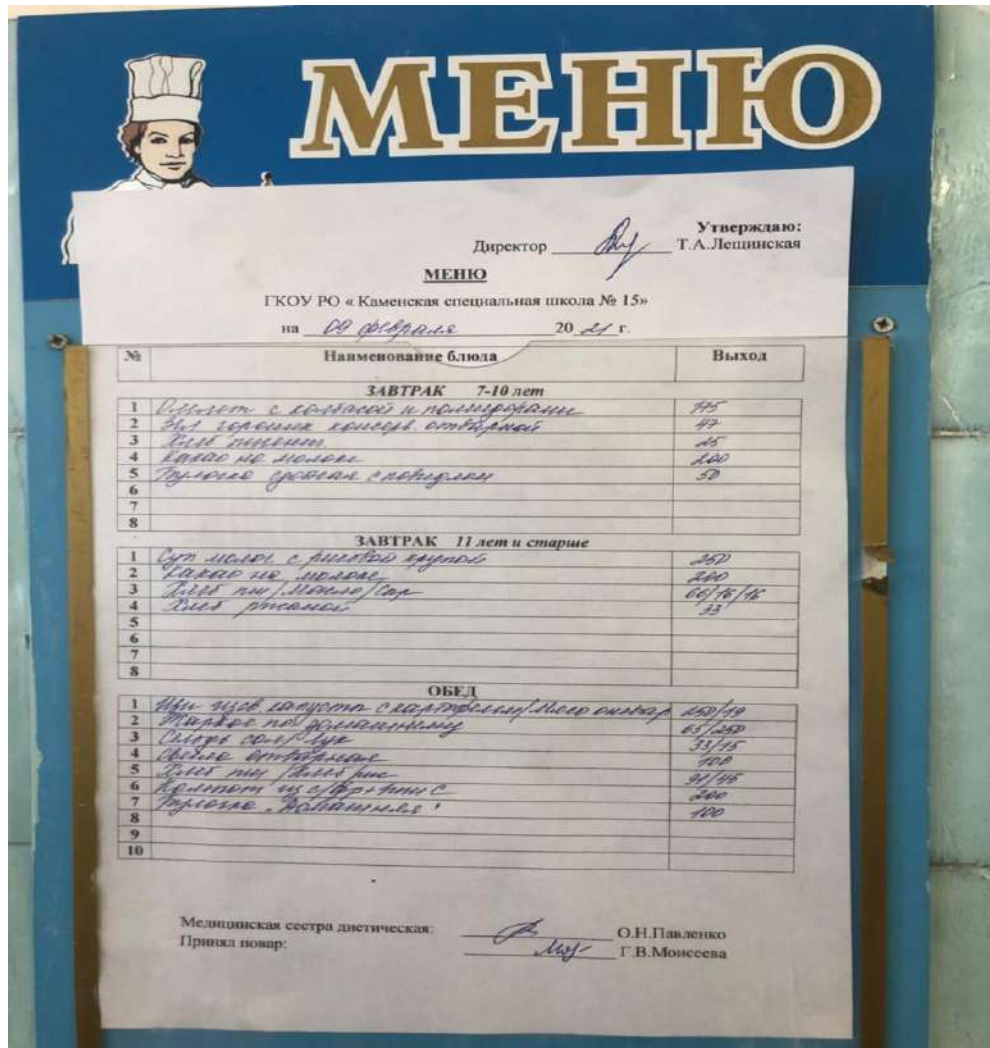 МЕНЮ
Утверждаю:
Директор Т.А.Лещинская
МЕНЮ
ГКОУ РО « Каменская специальная школа № 15»
на 09 февраля 20 21 г.
№ Наименование блюда Выход
ЗАВТРАК 7-10 лет
1 Омлет с колбасой и помидорами 175
2 Зел горошек консерв. отварной 47
3 Хлеб пшенич 25
4 Какао на молоке 200
5 Булочка сдобная с повидлом 50
6
7
8
ЗАВТРАК 11 лет и старше
1 Суп молоч с рисовой крупой 250
2 Какао на молоке 200
3 Хлеб пш/Масло/Сыр 66/16/16
4 Хлеб ржаной 33
5
6
7
8
ОБЕД
1 Щи из св капусты с картофелем/Мясо 250/19
2 Жаркое по домашнему 63/250
3 Сельдь сол/Лук 33/15
4 Свекла отварная 100
5 Хлеб пш /Хлеб рж 91/45
6 Компот из с/фр+вит С 200
7 Булочка "Домашняя" 100
8
9
10
Медицинская сестра диетическая: О.Н.Павленко
Принял повар: Г.В.Моисеева